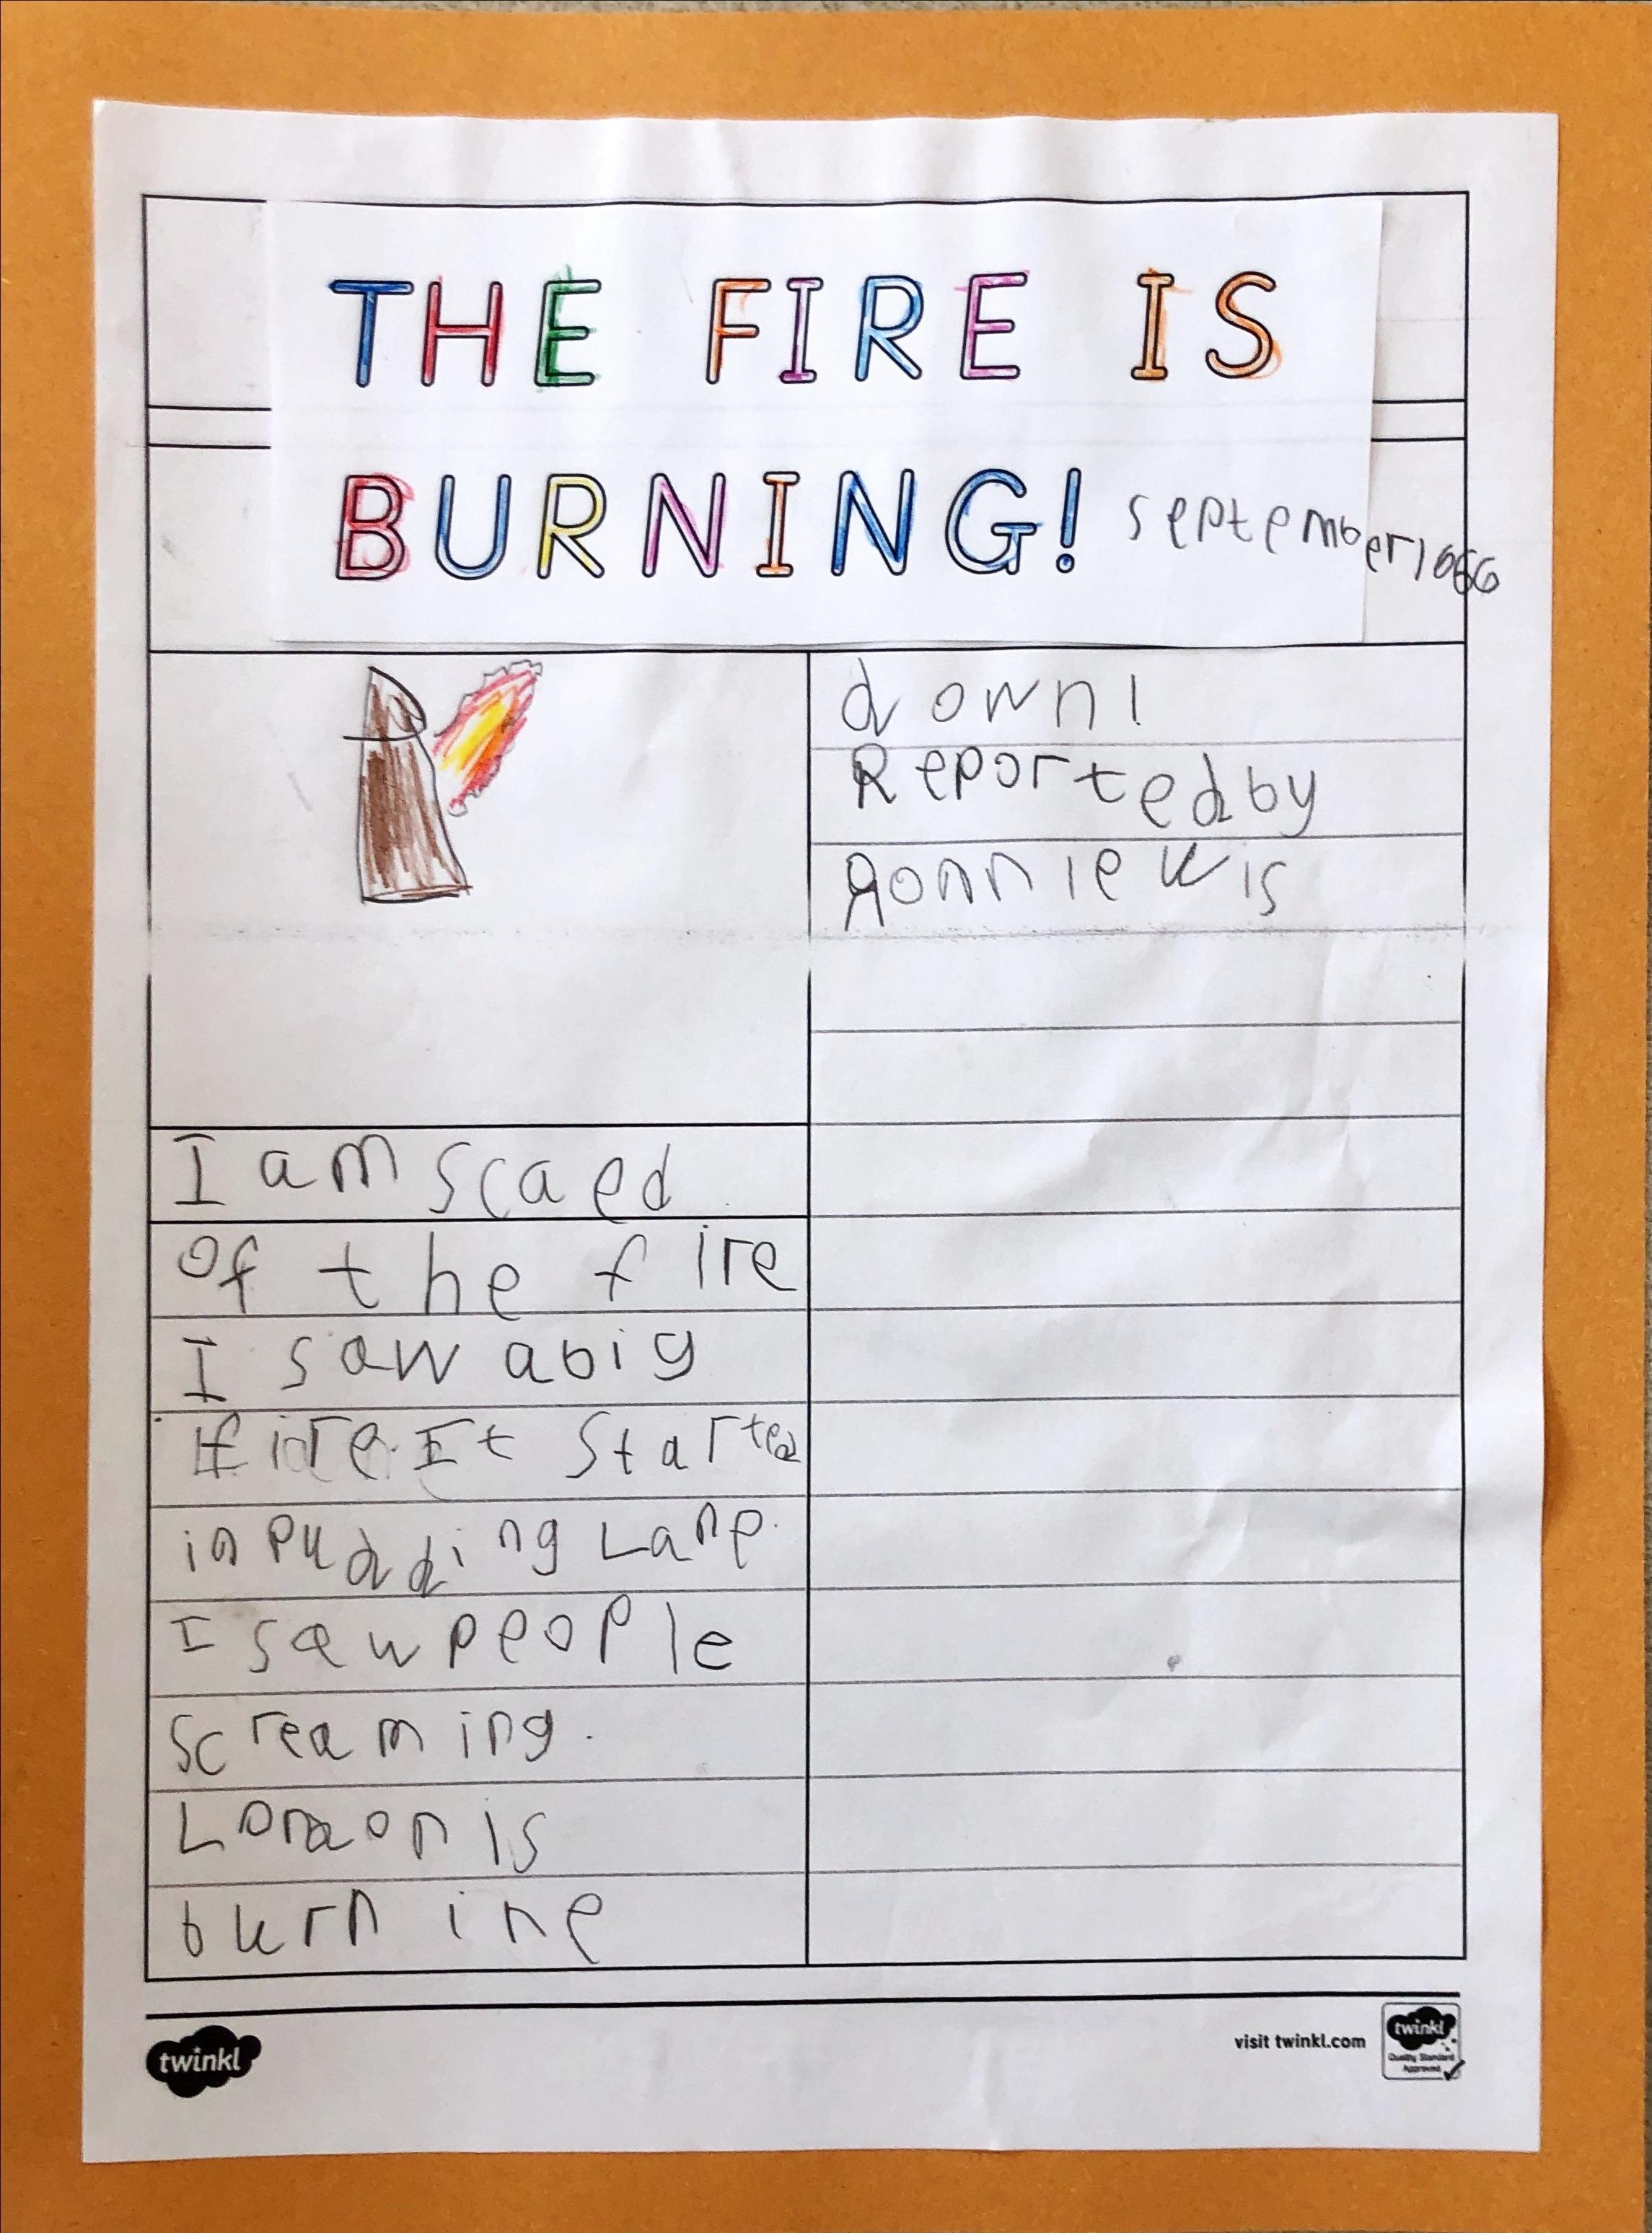 THE FIRE IS
BURNING!
September 1666
I am scaed
of the fire
I saw a big
fire. It started
in Pudding Lane.
I saw people
screaming.
London is
burnine
down!
Reported by
Ronnie wis
twinkl
visit twinkl.com
twinkl
Quality Standard
Approved